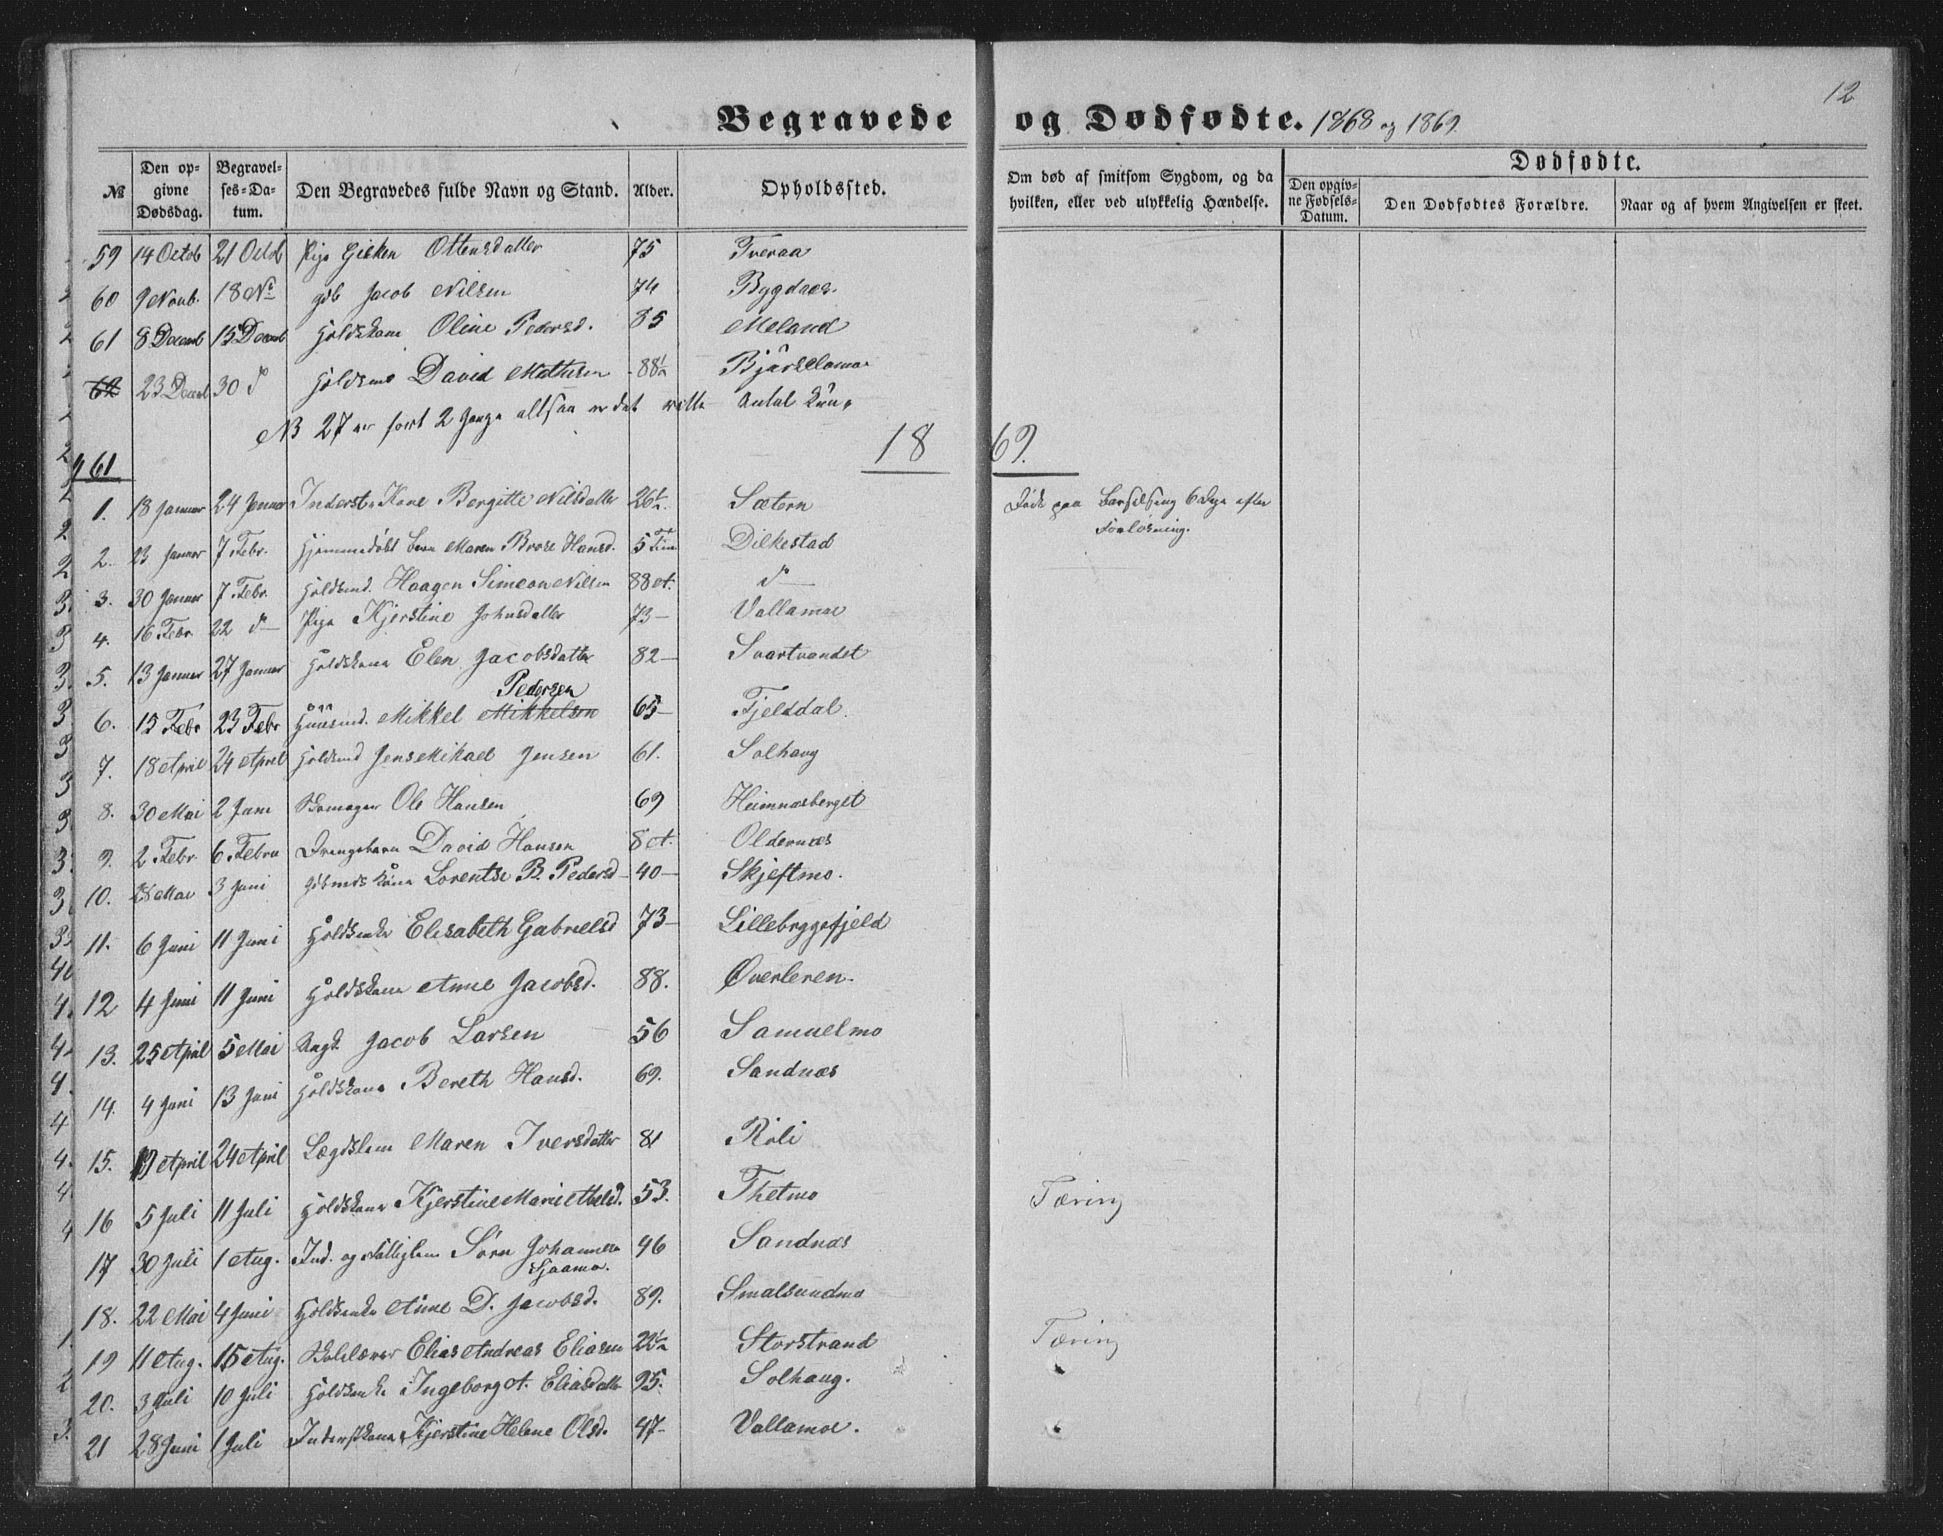 12
Begravede og Dødfødte. 1868 og 1869
№ Den opgivne Dødsdag. Begravelses-Datum. Den Begravedes fulde Navn og Stand. Alder. Opholdssted. Om død af smitsom Sygdom, og da hvilken, eller ved ulykkelig Hændelse. Dødfødte. Den opgivne Fødsels-Datum. Den Dødfødtes Forældre. Naar og af hvem Angivelsen er skeet.
59 14 Octob 21 Octob Pige Ottensdatter 75 Tveraa
60 9 Novb. 18 Nov Jacob Nilsen 74 Bygdnes
61 8 Decemb 15 Decemb Holdskone Oline Pedersd. 85 Meland
62 23 Decemb 30 do David Mathisen 88½
NB 27 er ført 2 Gange altsaa er det Antal kun
61
1869.
1. 18 Januar 24 Januar Inderst. Kone Bergitte Nilsdatter 26½ Sætern Døde paa Barselseng 6 Dage efter
Forløsning.
2. 23 Januar 7 Febr. Hjemmedøbt Barn Maren Hansd. 5 Tim Dilkestad
3. 30 Januar 7 Febr. Haagen Simeon Nilsen 88 A. do
4. 16 Febr 22 do Pige Kjerstine Johnsdatter 73 Vallamoe
5. 13 Januar 27 Januar Holdskone Elen Jacobsdatter 82 Svartvandet
Pedersen
6. 15 Febr 23 Febr Huusmd. Mikkel Mikkelsen 65 Fjelddal.
7. 18 April 24 April Jens Mikael Jensen 61. Solhaug
8. 30 Mai 2 Juni Ole Hansen 69 Heimnæsberget
9. 2 Febr. 6 Febru Drengebarn David Hansen 8 A. Oldernæs
10. 28 Mai 3 Juni Lorentse B. Pedersd 40 Skjeftmo.
11. 6 Juni 11 Juni Elisabeth Gabrielsd 73 Lillebryggefjeld
12 4 Juni 11 Juni Holdskone Anne Jacobsd. 88. Øverleren.
13. 25 April 5 Mai Ungk. Jacob Larsen 56 Samuelmo
14. 4 Juni 13 Juni Holdskone Bereth Hansd. 69. Sandnæs
15. 19 April 24 April Lægdslem Maren Iversdatter 81 Röli
16 5 Juli 11 Juli Holdskone Kjerstine Marie 53. Thetmo Tæring
17 30 Juli 1 Aug. Ind. og Fattiglem Sörn Johannesen 46 Sandnæs
Sjaamo.
18. 22 Mai 4 Juni Anne D. Jacobsd. 89. Smalsundmo
19 11 Aug. 15 Aug. Skolelærer Elias Andreas Eliasen 22½ Storstrand Tæring
20. 3 Juli 10 Juli Ingeborg A. Eliasdatter 95. Solhaug.
21 28 Juni 1 Juli Inderstkone Kjerstine Helene Olsd. 47 Vallamoe.